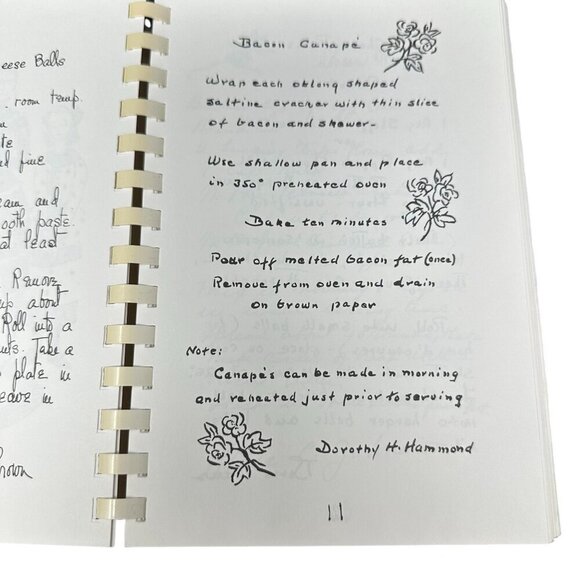 eese Balls
. room temp.
m
te
nd fine
eam and
ooth paste.
at least
Remove
up about
Roll into a
uts. Take a
plate in
eave in
rown
Bacon Canapé
Wrap each oblong shaped
saltine cracker with thin slice
of bacon and skewer-
Use shallow pan and place
in 350° preheated oven
Bake ten minutes
Pour off melted bacon fat (once)
Remove from oven and drain
on brown paper
Note:
Canapés can be made in morning
and reheated just prior to serving
Dorothy H. Hammond
11